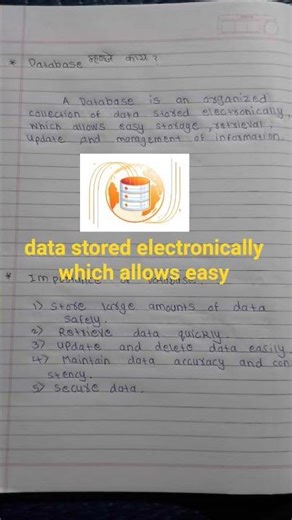 * Database म्हणजे काय?
A Database is an organized
collection of data stored electronically,
which allows easy storage, retrieval,
update and management of information.
data stored electronically
which allows easy
* Importance of Database.
1) Store large amounts of data
safely.
2) Retrieve data quickly.
3) update and delete data easily
4) Maintain data accuracy and con
stency.
5) Secure data.